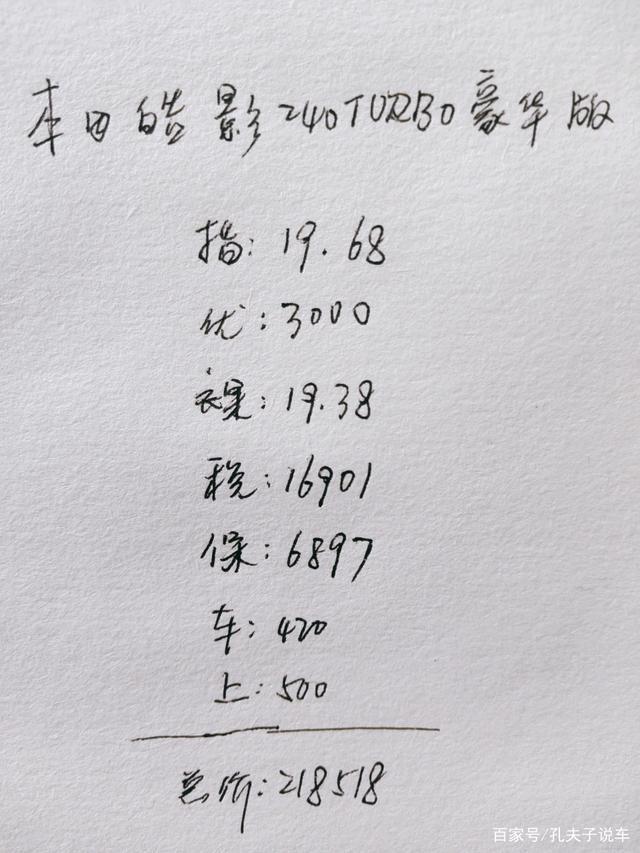 本田皓影240TURBO豪华版
指:19.68
优:3000
裸:19.38
税:16901
保:6897
车:420
上:500
总价:218518
百家号/孔夫子说车